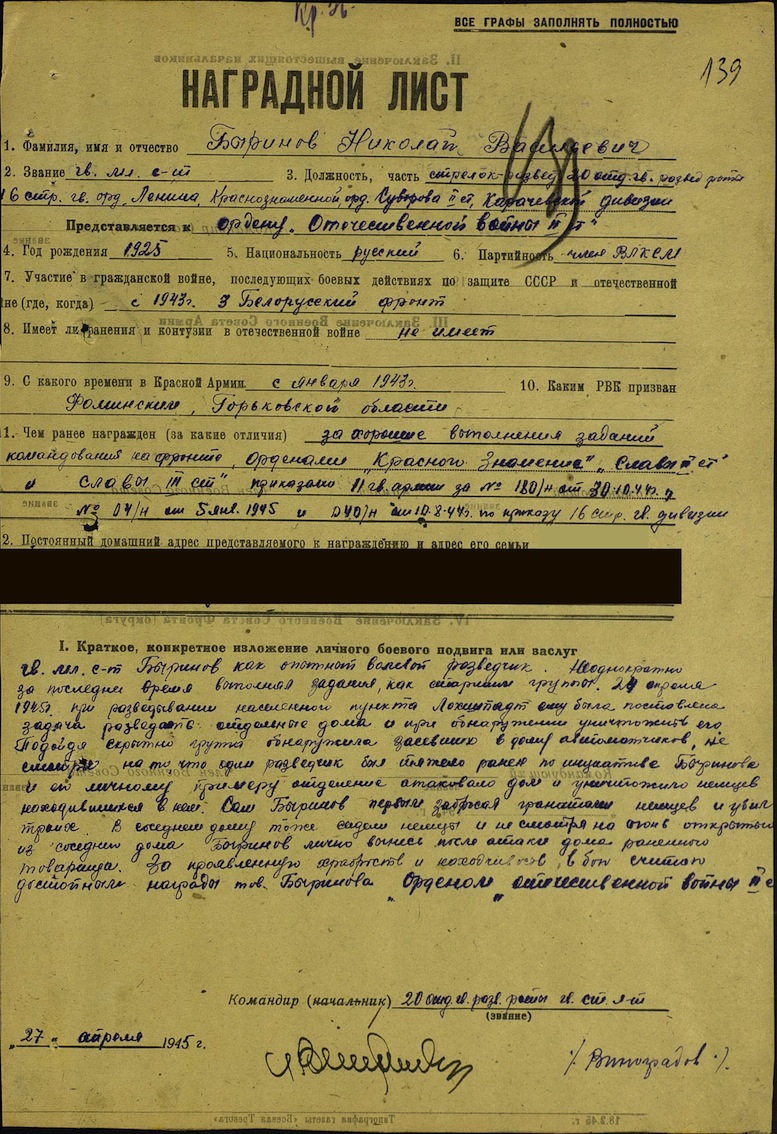 Кр. Зв.
ВСЕ ГРАФЫ ЗАПОЛНЯТЬ ПОЛНОСТЬЮ
139
НАГРАДНОЙ ЛИСТ
1. Фамилия, имя и отчество Быринов Николай Васильевич
2. Звание гв. мл. с-т 3. Должность, часть стрелок-развед. 20 отд. гв. развед роты
16 стр. гв. орд. Ленина, Краснознаменной орд. Суворова II ст, Карачевской дивизии
Представляется к ордену „Отечественной войны II ст"
4. Год рождения 1925 5. Национальность русский 6. Партийность член ВЛКСМ
7. Участие в гражданской войне, последующих боевых действиях по защите СССР и отечественной
йне (где, когда) с 1943г. 3 Белорусский фронт
8. Имеет ли ранения и контузии в отечественной войне не имеет
9. С какого времени в Красной Армии с января 1943г. 10. Каким РВК призван
Фоминским, Горьковской области
11. Чем ранее награжден (за какие отличия) за хорошие выполнения заданий
командования на фронте, орденами „Красного Знамени", „Славы II ст"
и Славы III ст" приказами 11 гв. армии за № 180/н от 30.10.44г и
№ 04/н от 5 янв. 1945 и 040/н от 10.8.44г. по приказу 16 стр. гв. дивизии
2. Постоянный домашний адрес представляемого к награждению и адрес его семьи
I. Краткое, конкретное изложение личного боевого подвига или заслуг
гв. мл. с-т Быринов как опытный волевой разведчик. Неоднократно
за последнее время выполнял задания, как старший группы. 24 апреля
1945г. при разведывании населенной пункта Лохштадт ему была поставлена
задача разведать отдельные дома и при обнаружении уничтожить его.
Подойдя скрытно группа обнаружила засевших в дому автоматчиков, не
смотря на то что один разведчик был тяжело ранен по инициативе Быринова
и его личному примеру отделение атаковало дом и уничтожило немцев
находившихся в нем. Сам Быринов первым забросал гранатами немцев и убил
троих. В соседнем дому тоже сидели немцы и не смотря на огонь открытый
из соседнего дома Быринов лично вынес после атаки дома раненного
товарища. За проявленную храбрость и находчивость в бою считаю
достойным награды тов. Быринова „Орденом" отечественной войны II с
Командир (начальник) 20 отд. гв. разв. роты гв. ст. л-т
(звание)
„27" апреля 1945 г.
/. Виноградов ./.
Типография газеты «Боевая Тревога» 18.2.45 г.